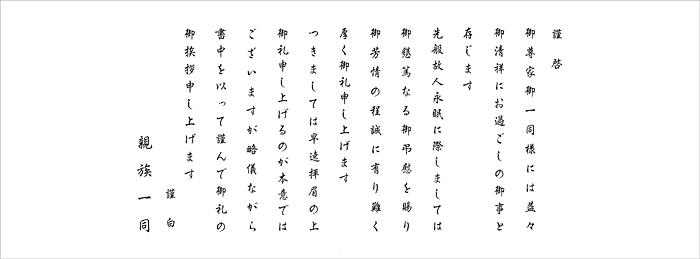 謹啓
御尊家御一同様には益々
御清祥にお過ごしの御事と
存じます
先般故人永眠に際しましては
御懇篤なる御弔慰を賜り
御芳情の程誠に有り難く
厚く御礼申し上げます
つきましては早速拝眉の上
御礼申し上げるのが本意では
ございますが略儀ながら
書中を以って謹んで御礼の
御挨拶申し上げます
謹白
親族一同